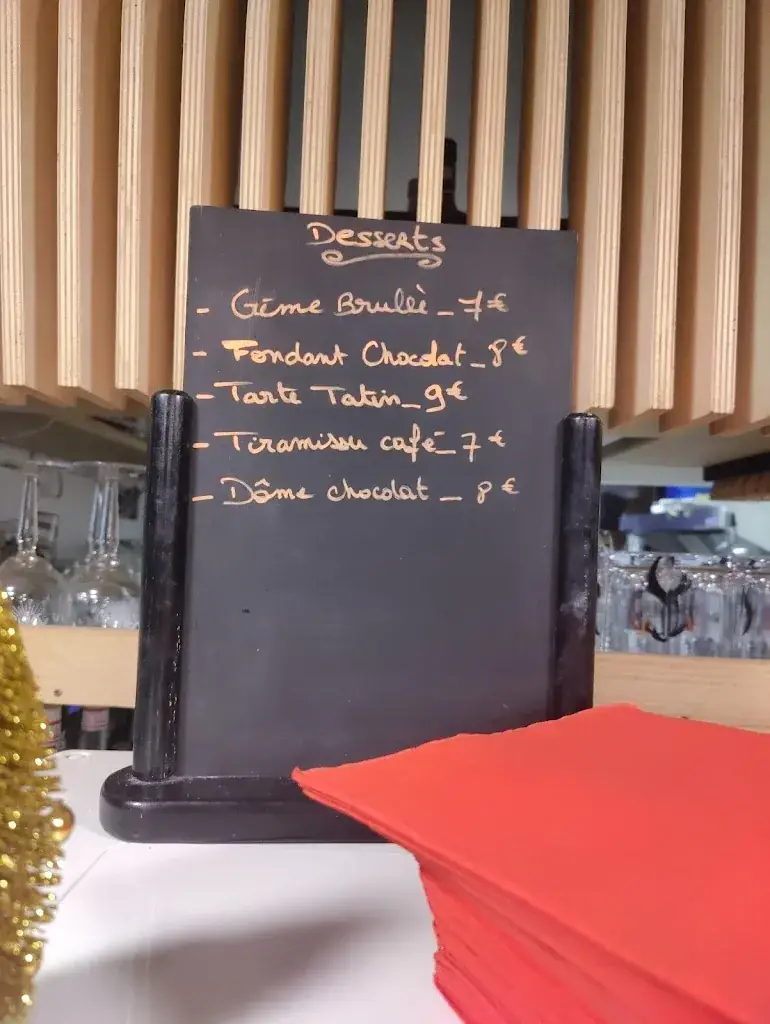 Desserts
- Crème Brullè - 7€
- Fondant Chocolat - 8€
- Tarte Tatin - 9€
- Tiramisou café - 7€
- Dôme chocolat - 8€